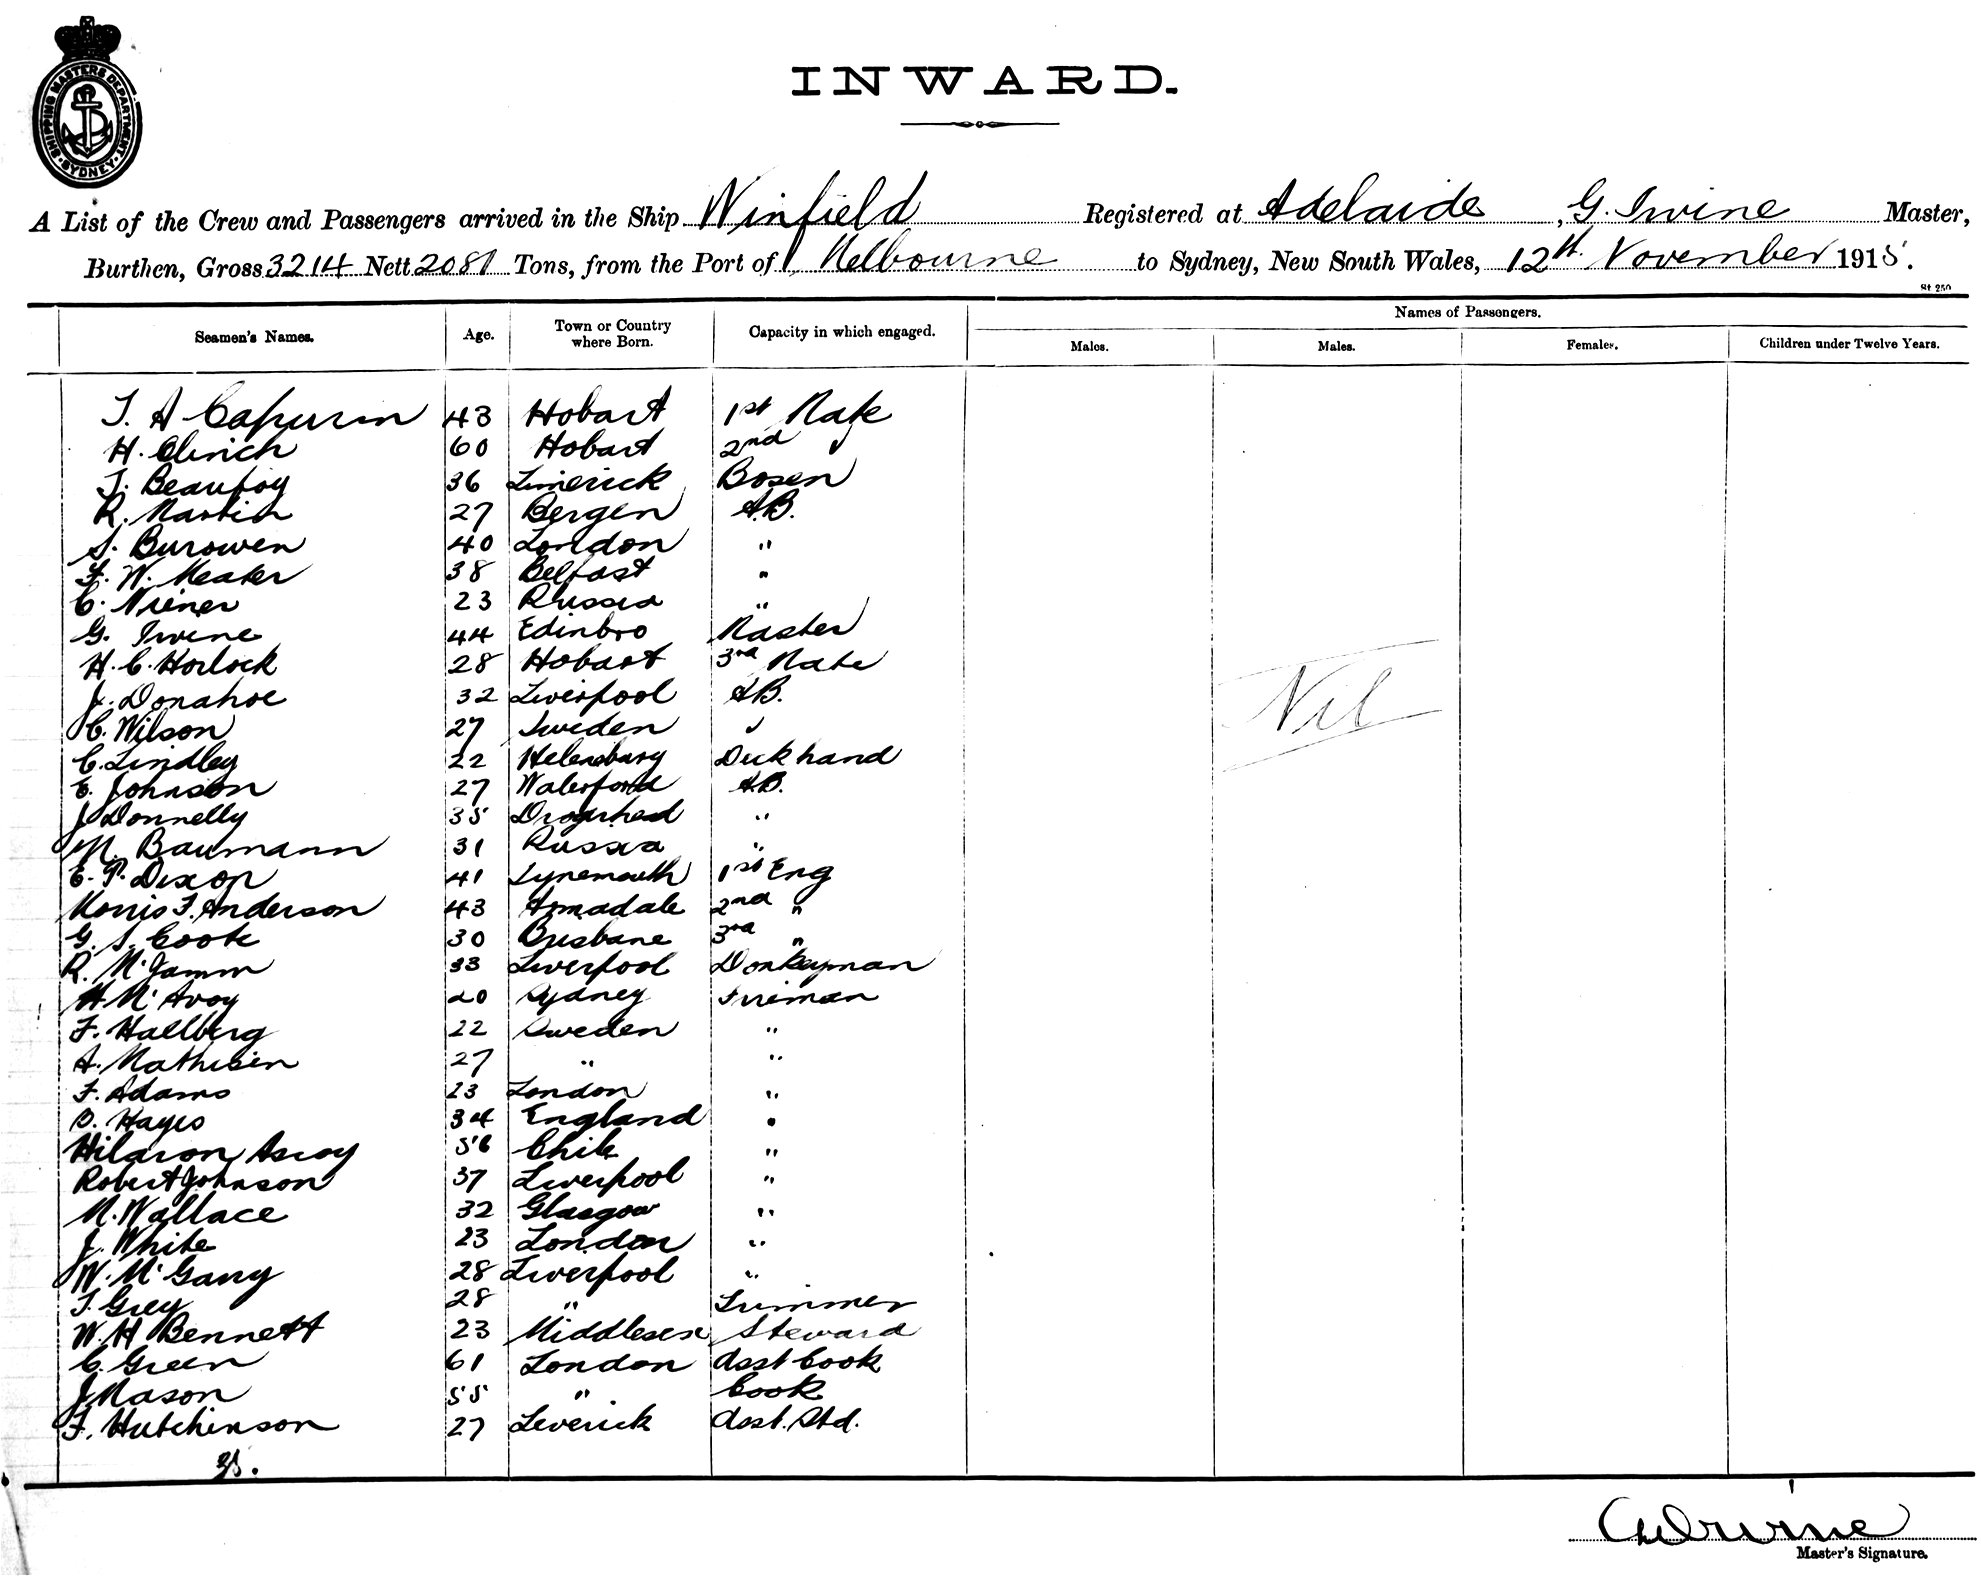 SHIPPING MASTERS DEPARTMENT · SYDNEY ·
INWARD.
A List of the Crew and Passengers arrived in the Ship Winfield Registered at Adelaide, G. Irvine Master,
Burthen, Gross 3214 Nett 2081 Tons, from the Port of Melbourne to Sydney, New South Wales, 12th November 1915.
St 250
Seamen's Names. Age. Town or Country where Born. Capacity in which engaged. Names of Passengers.
Males. Males. Females. Children under Twelve Years.
A 43 Hobart 1st Mate
H. 60 Hobart 2nd "
J. Beaufoy 36 Limerick Bosen
R. Martin 27 Bergen A.B.
S. Burowen 40 London "
F. W. Meaker 38 Belfast "
C. 23 Russia "
G. Irvine 44 Edinbro Master
H. C. Horlock 28 Hobart 3rd Mate
J. Donahoe 32 Liverpool A.B.
C. Wilson 27 Sweden "
C. Lindley 22 Helensburg Deckhand
E. Johnson 27 Waterford A.B.
J Donnelly 35 "
M. Baumann 31 Russia "
E. P. Dixon 41 Tynemouth 1st Eng
Morris J. Anderson 43 Armadale 2nd "
G. S. Coote 30 Brisbane 3rd "
R. 33 Liverpool Donkeyman
H McAvoy 20 Sydney Fireman
F. Hallberg 22 Sweden "
A. Mathisen 27 " "
F. Adams 23 London "
B. Hayes 34 England "
Hilaron 56 Chile "
Robert Johnson 37 Liverpool "
M. Wallace 32 Glasgow "
J. White 23 London "
W. McGarry 28 Liverpool "
T. Grey 28 " Trimmer
W. H Bennett 23 Middlesex Steward
C. Green 61 London Asst Cook
J Mason 55 " Cook
F. Hutchinson 27 Asst. Std.
Nil
Irvine
Master's Signature.